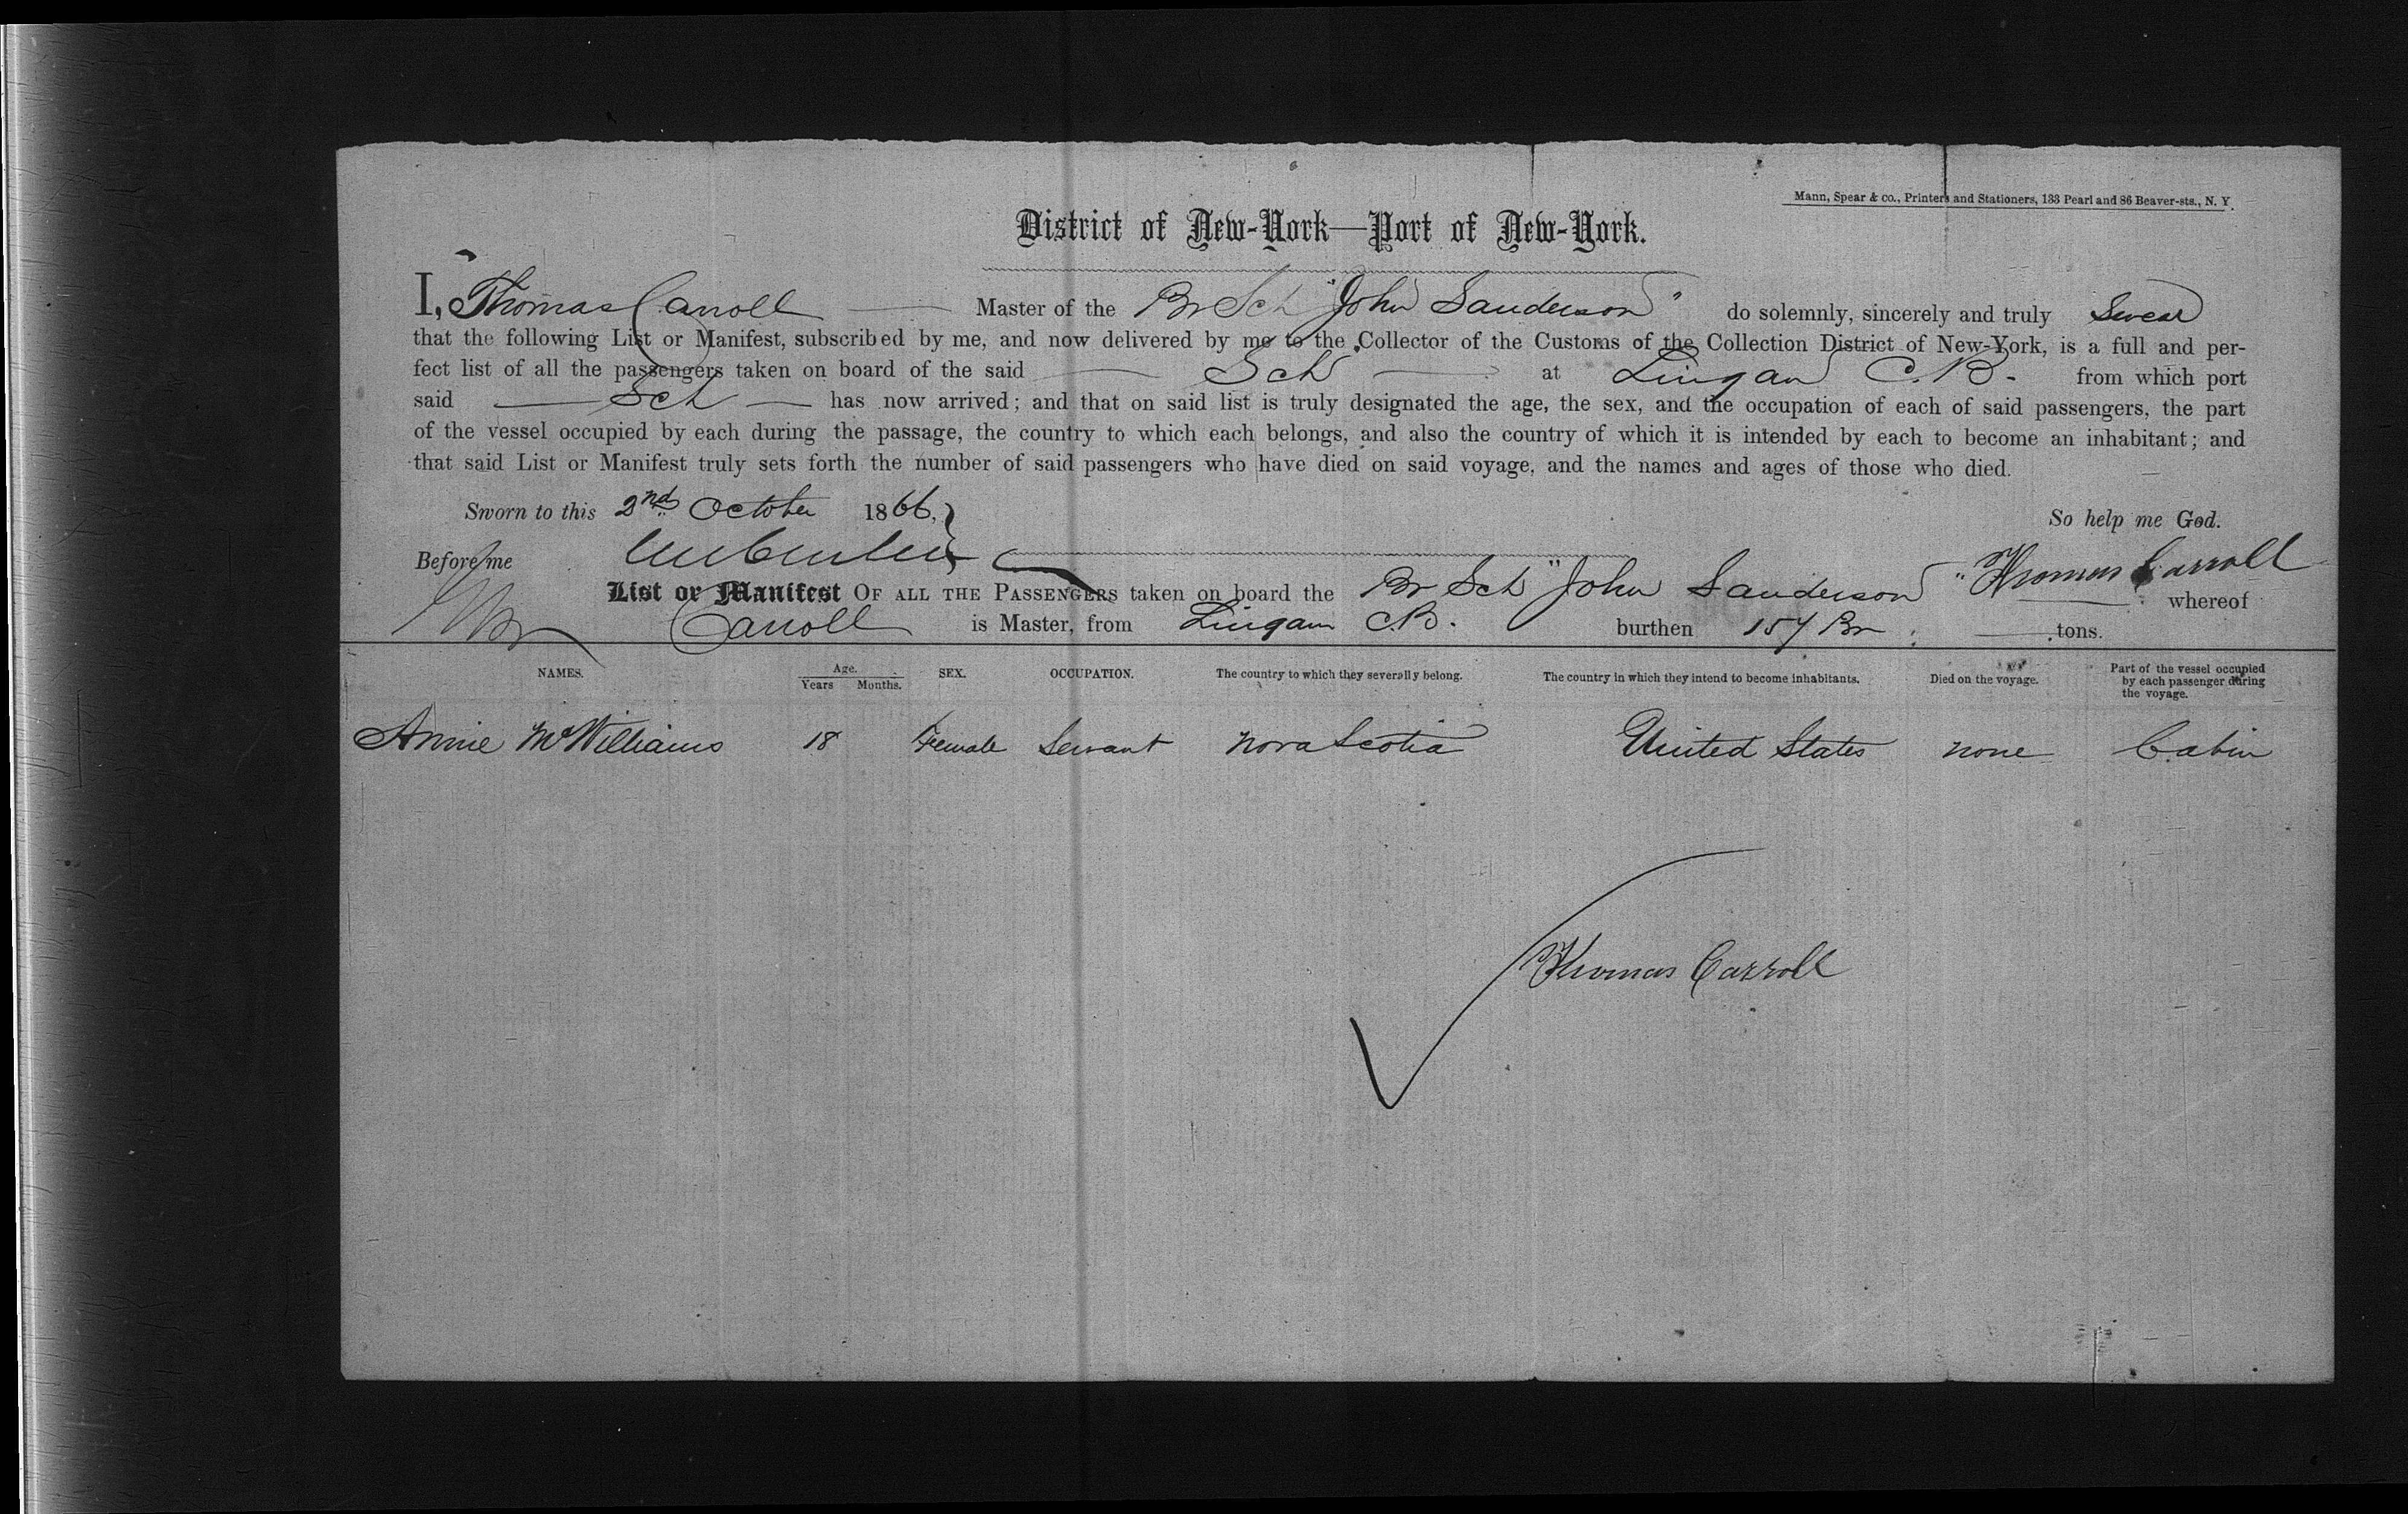 Mann, Spear & co., Printers and Stationers, 133 Pearl and 86 Beaver-sts., N. Y.
District of New-York—Port of New-York.
I, Thomas Carroll Master of the Br Sch "John Sanderson" do solemnly, sincerely and truly Swear
that the following List or Manifest, subscribed by me, and now delivered by me to the Collector of the Customs of the Collection District of New-York, is a full and per-
fect list of all the passengers taken on board of the said Sch at Lingan C.B. from which port
said Sch has now arrived; and that on said list is truly designated the age, the sex, and the occupation of each of said passengers, the part
of the vessel occupied by each during the passage, the country to which each belongs, and also the country of which it is intended by each to become an inhabitant; and
that said List or Manifest truly sets forth the number of said passengers who have died on said voyage, and the names and ages of those who died.
Sworn to this 2nd October 1866, So help me God.
Before me Thomas Carroll
List or Manifest OF ALL THE PASSENGERS taken on board the Br Sch "John Sanderson" whereof
Carroll is Master, from Lingan C.B. burthen 157 Br tons.
NAMES. Age. Years Months. SEX. OCCUPATION. The country to which they severally belong. The country in which they intend to become inhabitants. Died on the voyage. Part of the vessel occupied by each passenger during the voyage.
Annie McWilliams 18 Female Servant Nova Scotia United States none Cabin
Thomas Carroll